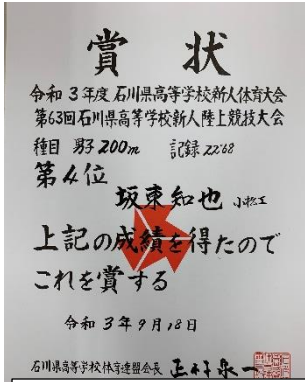 賞状
令和3年度石川県高等学校新人体育大会
第63回石川県高等学校新人陸上競技大会
種目 男子200m 記録 22"68
第4位
坂東知也 小松工
上記の成績を得たので
これを賞する
令和3年9月18日
石川県高等学校体育連盟会長